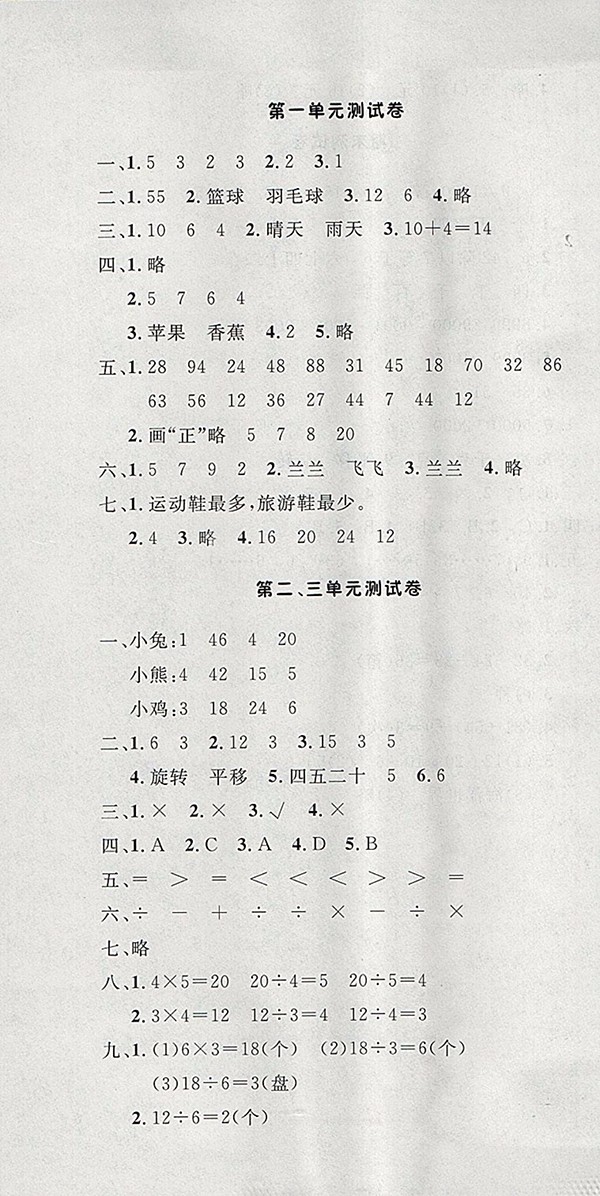 第一单元测试卷
一、1.5 3 2 3 2.2 3.1
二、1.55 2.篮球 羽毛球 3.12 6 4.略
三、1.10 6 4 2.晴天 雨天 3.10+4=14
四、1.略
2.5 7 6 4
3.苹果 香蕉 4.2 5.略
五、1.28 94 24 48 88 31 45 18 70 32 86
63 56 12 36 27 44 7 44 12
2.画“正”略 5 7 8 20
六、1.5 7 9 2 2.兰兰 飞飞 3.兰兰 4.略
七、1.运动鞋最多,旅游鞋最少。
2.4 3.略 4.16 20 24 12
第二、三单元测试卷
一、小兔:1 46 4 20
小熊:4 42 15 5
小鸡:3 18 24 6
二、1.6 3 2.12 3 3.15 3 5
4.旋转 平移 5.四五二十 5 6.6
三、1.× 2.× 3.√ 4.×
四、1.A 2.C 3.A 4.D 5.B
五、= > = < < < > > =
六、÷ - + ÷ ÷ × - ÷ ×
七、略
八、1.4×5=20 20÷4=5 20÷5=4
2.3×4=12 12÷3=4 12÷4=3
九、1.(1)6×3=18(个) (2)18÷3=6(个)
(3)18÷6=3(盘)
2.12÷6=2(个)